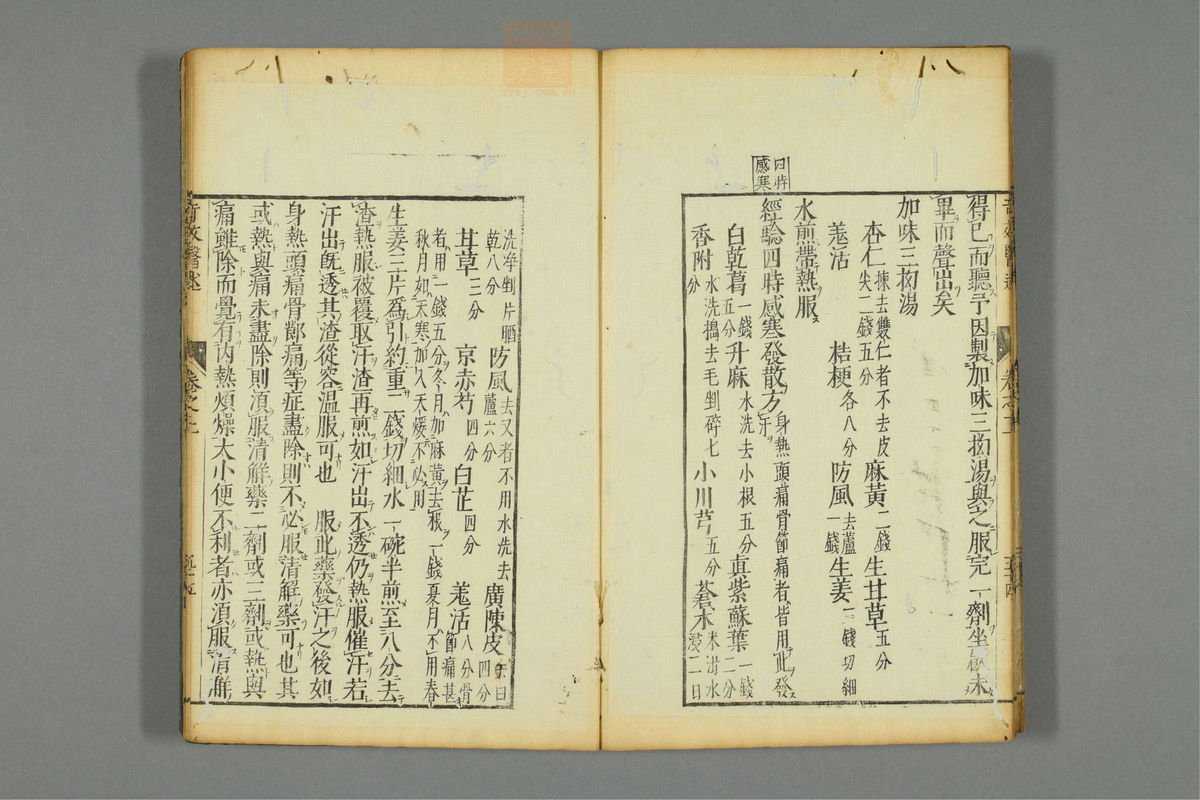 得已而聽予因製加味三拗湯與之服完一劑坐未
畢而聲出矣
加味三拗湯
杏仁揀去雙仁者不去皮尖二錢五分 麻黃二錢 生甘草五分
羗活 桔梗各八分 防風去蘆一錢 生姜三錢切細
水煎帶熱服
四時感寒
經驗四時感寒發散方身熱頭痛骨節痛者皆用此發汗
白乾葛一錢五分 升麻水洗去小根五分 真紫蘇葉一錢二分
香附水洗搗去毛剉碎七分 小川芎五分 蒼朮米泔水浸二日
洗淨剉片晒乾八分 防風去叉者不用水洗去蘆六分 廣陳皮去白四分
甘草三分 京赤芍四分 白芷四分 羗活八分骨節痛甚
者用一錢五分冬月加麻黃去根一錢夏月不用春
秋月如天寒加入天煖不必用
生姜三片為引約重二錢切細水一碗半煎至八分去
渣熱服被覆取汗渣再煎如汗出不透仍熱服催汗若
汗出既透其渣從容温服可也 服此藥發汗之後如
身熱頭痛骨節痛等症盡除則不必服清解藥可也其
或熱與痛未盡除則須服清解藥二劑或三劑或熱與
痛雖除而覺有內熱煩燥大小便不利者亦須服清解